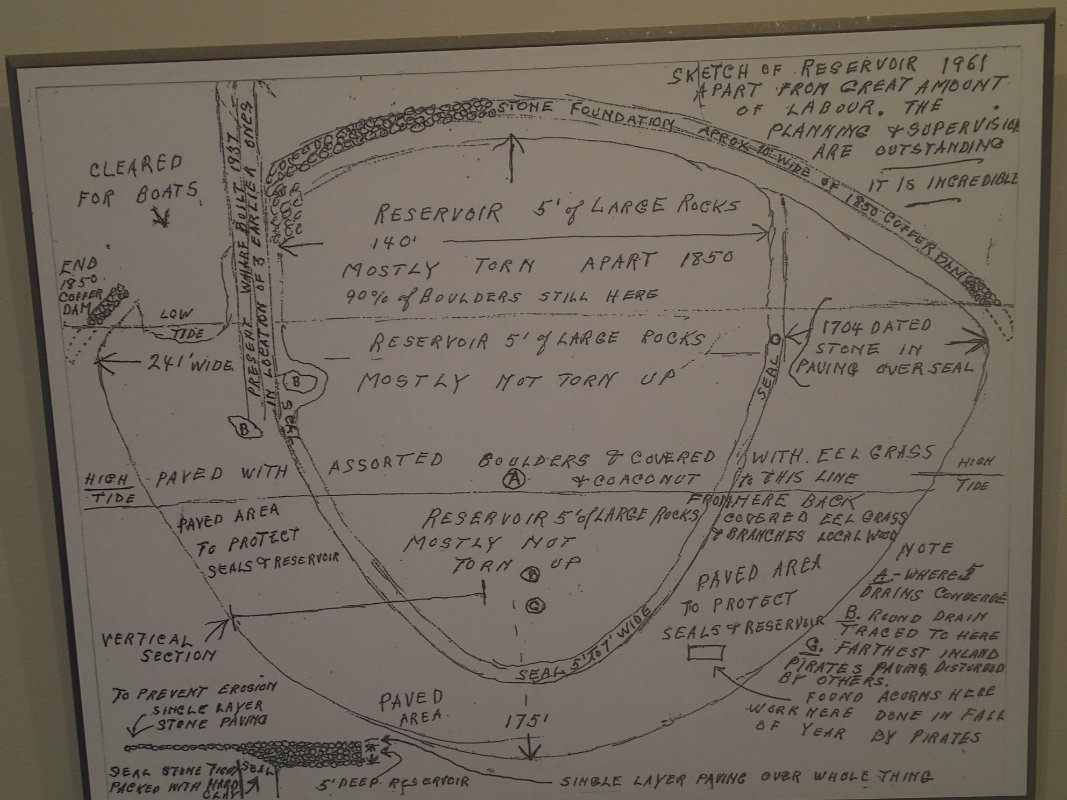 SKETCH OF RESERVOIR 1961
APART FROM GREAT AMOUNT
OF LABOUR. THE
PLANNING & SUPERVISION
ARE OUTSTANDING
IT IS INCREDIBLE
STONE FOUNDATION APROX 10' WIDE OF 1850 COFFER DAM
CLEARED
FOR BOATS
PRESENT WHARF BUILT 1937
IN LOCATION OF 3 EARLIER ONES
RESERVOIR 5' of LARGE ROCKS
140'
MOSTLY TORN APART 1850
90% of BOULDERS STILL HERE
END
1850
COFFER
DAM
LOW
TIDE
241' WIDE
RESERVOIR 5' of LARGE ROCKS
MOSTLY NOT TORN UP
1704 DATED
STONE IN
PAVING OVER SEAL
SEAL
B
SEAL
B
HIGH
TIDE
PAVED WITH ASSORTED BOULDERS & COVERED WITH EEL GRASS
& COACONUT to THIS LINE
A
HIGH
TIDE
FROM HERE BACK
COVERED EEL GRASS
& BRANCHES LOCAL WOOD
PAVED AREA
TO PROTECT
SEALS & RESERVOIR
RESERVOIR 5' of LARGE ROCKS
MOSTLY NOT
TORN UP
G
PAVED AREA
TO PROTECT
SEALS & RESERVOIR
NOTE
A - WHERE 5
DRAINS CONVERGE
B. ROUND DRAIN
TRACED TO HERE
G. FARTHEST INLAND
PIRATES PAVING DISTURBED
BY OTHERS.
FOUND ACORNS HERE
WORK HERE DONE IN FALL
OF YEAR BY PIRATES
VERTICAL
SECTION
SEAL 5' TO 7' WIDE
PAVED
AREA.
175'
TO PREVENT EROSION
SINGLE LAYER
STONE PAVING
SEAL STONE TIGHT
PACKED WITH HARD
CLAY
SEAL
5' DEEP RESERVOIR
SINGLE LAYER PAVING OVER WHOLE THING